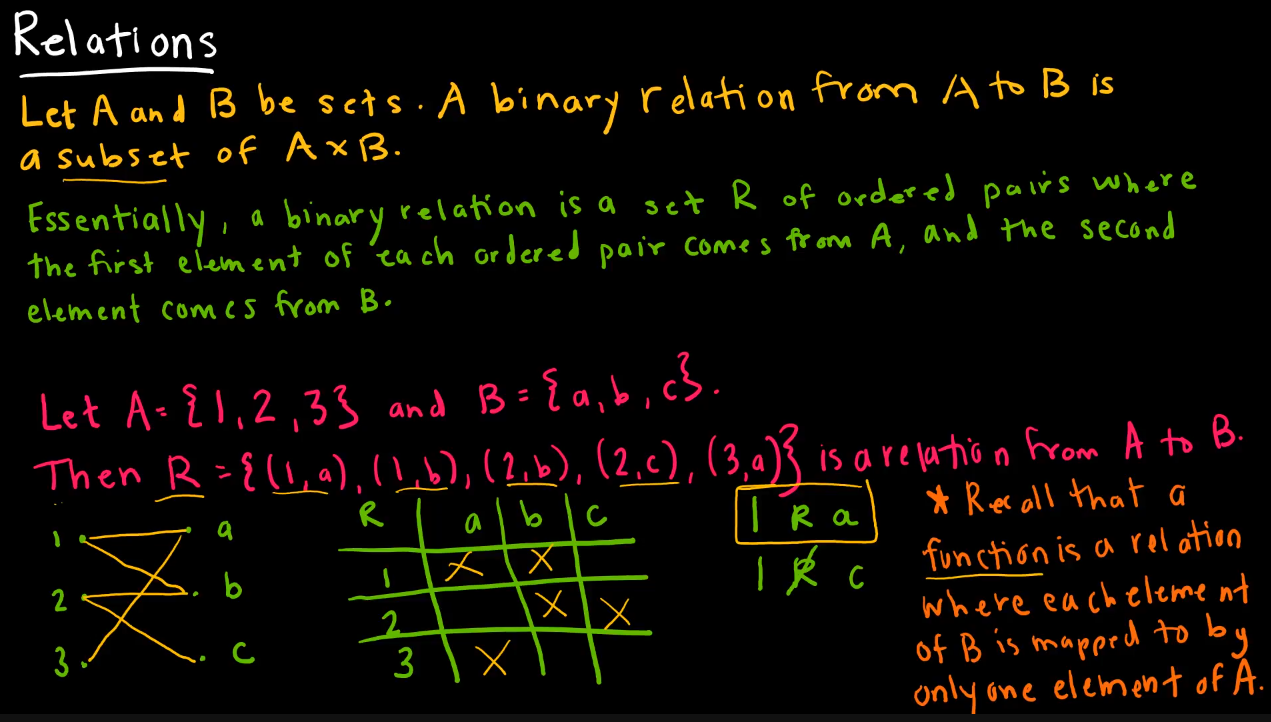 Relations
Let A and B be sets. A binary relation from A to B is
a subset of A × B.
Essentially, a binary relation is a set R of ordered pairs where
the first element of each ordered pair comes from A, and the second
element comes from B.
Let A = {1, 2, 3} and B = {a, b, c}.
Then R = {(1, a), (1, b), (2, b), (2, c), (3, a)} is a relation from A to B.
1 a
2 b
3 c
R a b c
1 X X
2 X X
3 X
1 R a
1 R̸ c
* Recall that a
function is a relation
where each element
of B is mapped to by
only one element of A.